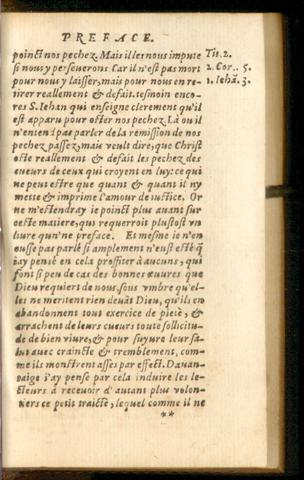 PREFACE.
poinct nos pechez. Mais il les nous impute
Tit. 2.
si nous y perseuerons. Car il n'est pas mort
2. Cor.. 5.
pour nous y laisser, mais pour nous en re-
1. Iehã. 3.
tirer reallement & defait. tesmoin enco-
res S. Iehan qui enseigne clerement qu'il
est apparu pour oster nos pechez. Là ou il
n'enten i pas parler de la remission de nos
pechez passez, mais veult dire, que Christ
oste reallement & defait les pechez des
cueurs de ceux qui croyent en luy: ce qui
ne peut estre que quant & quant il ny
mette & imprime l'amour de iustice. Or
ne m'estendray ie poinct plus auant sur
ceste matiere, qui requerroit plustost vn
liure qu'une preface. Et mesme ie n'en
eusse pas parlé si amplement n'eust esté q̃
i'ay pensé en cela proffiter à aucuns, qui
font si peu de cas des bonnes œuures que
Dieu requiert de nous, sous vmbre qu'el-
les ne meritent rien deuãt Dieu, qu'ils en
abandonnent tout exercice de pieté, &
arrachent de leurs cueurs toute sollicitu-
de de bien viure, & pour suyure leur sa-
lut auec craincte & tremblement, com-
me ils monstrent asses par effect. Dauan-
taige i'ay pensé par cela induire les le-
cteurs à receuoir d'autant plus volon-
tiers ce petit traicté, lequel comme il ne
**